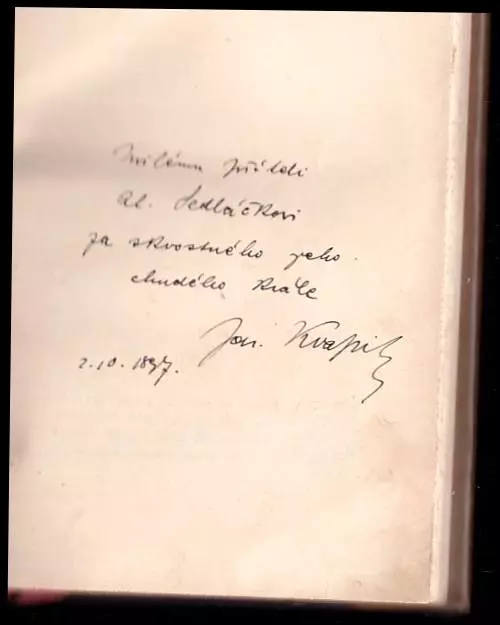 milému příteli
Al. Sedláčkovi
za skvostného jeho
chudého krále
Jar. Kvapil
2.10.1897.